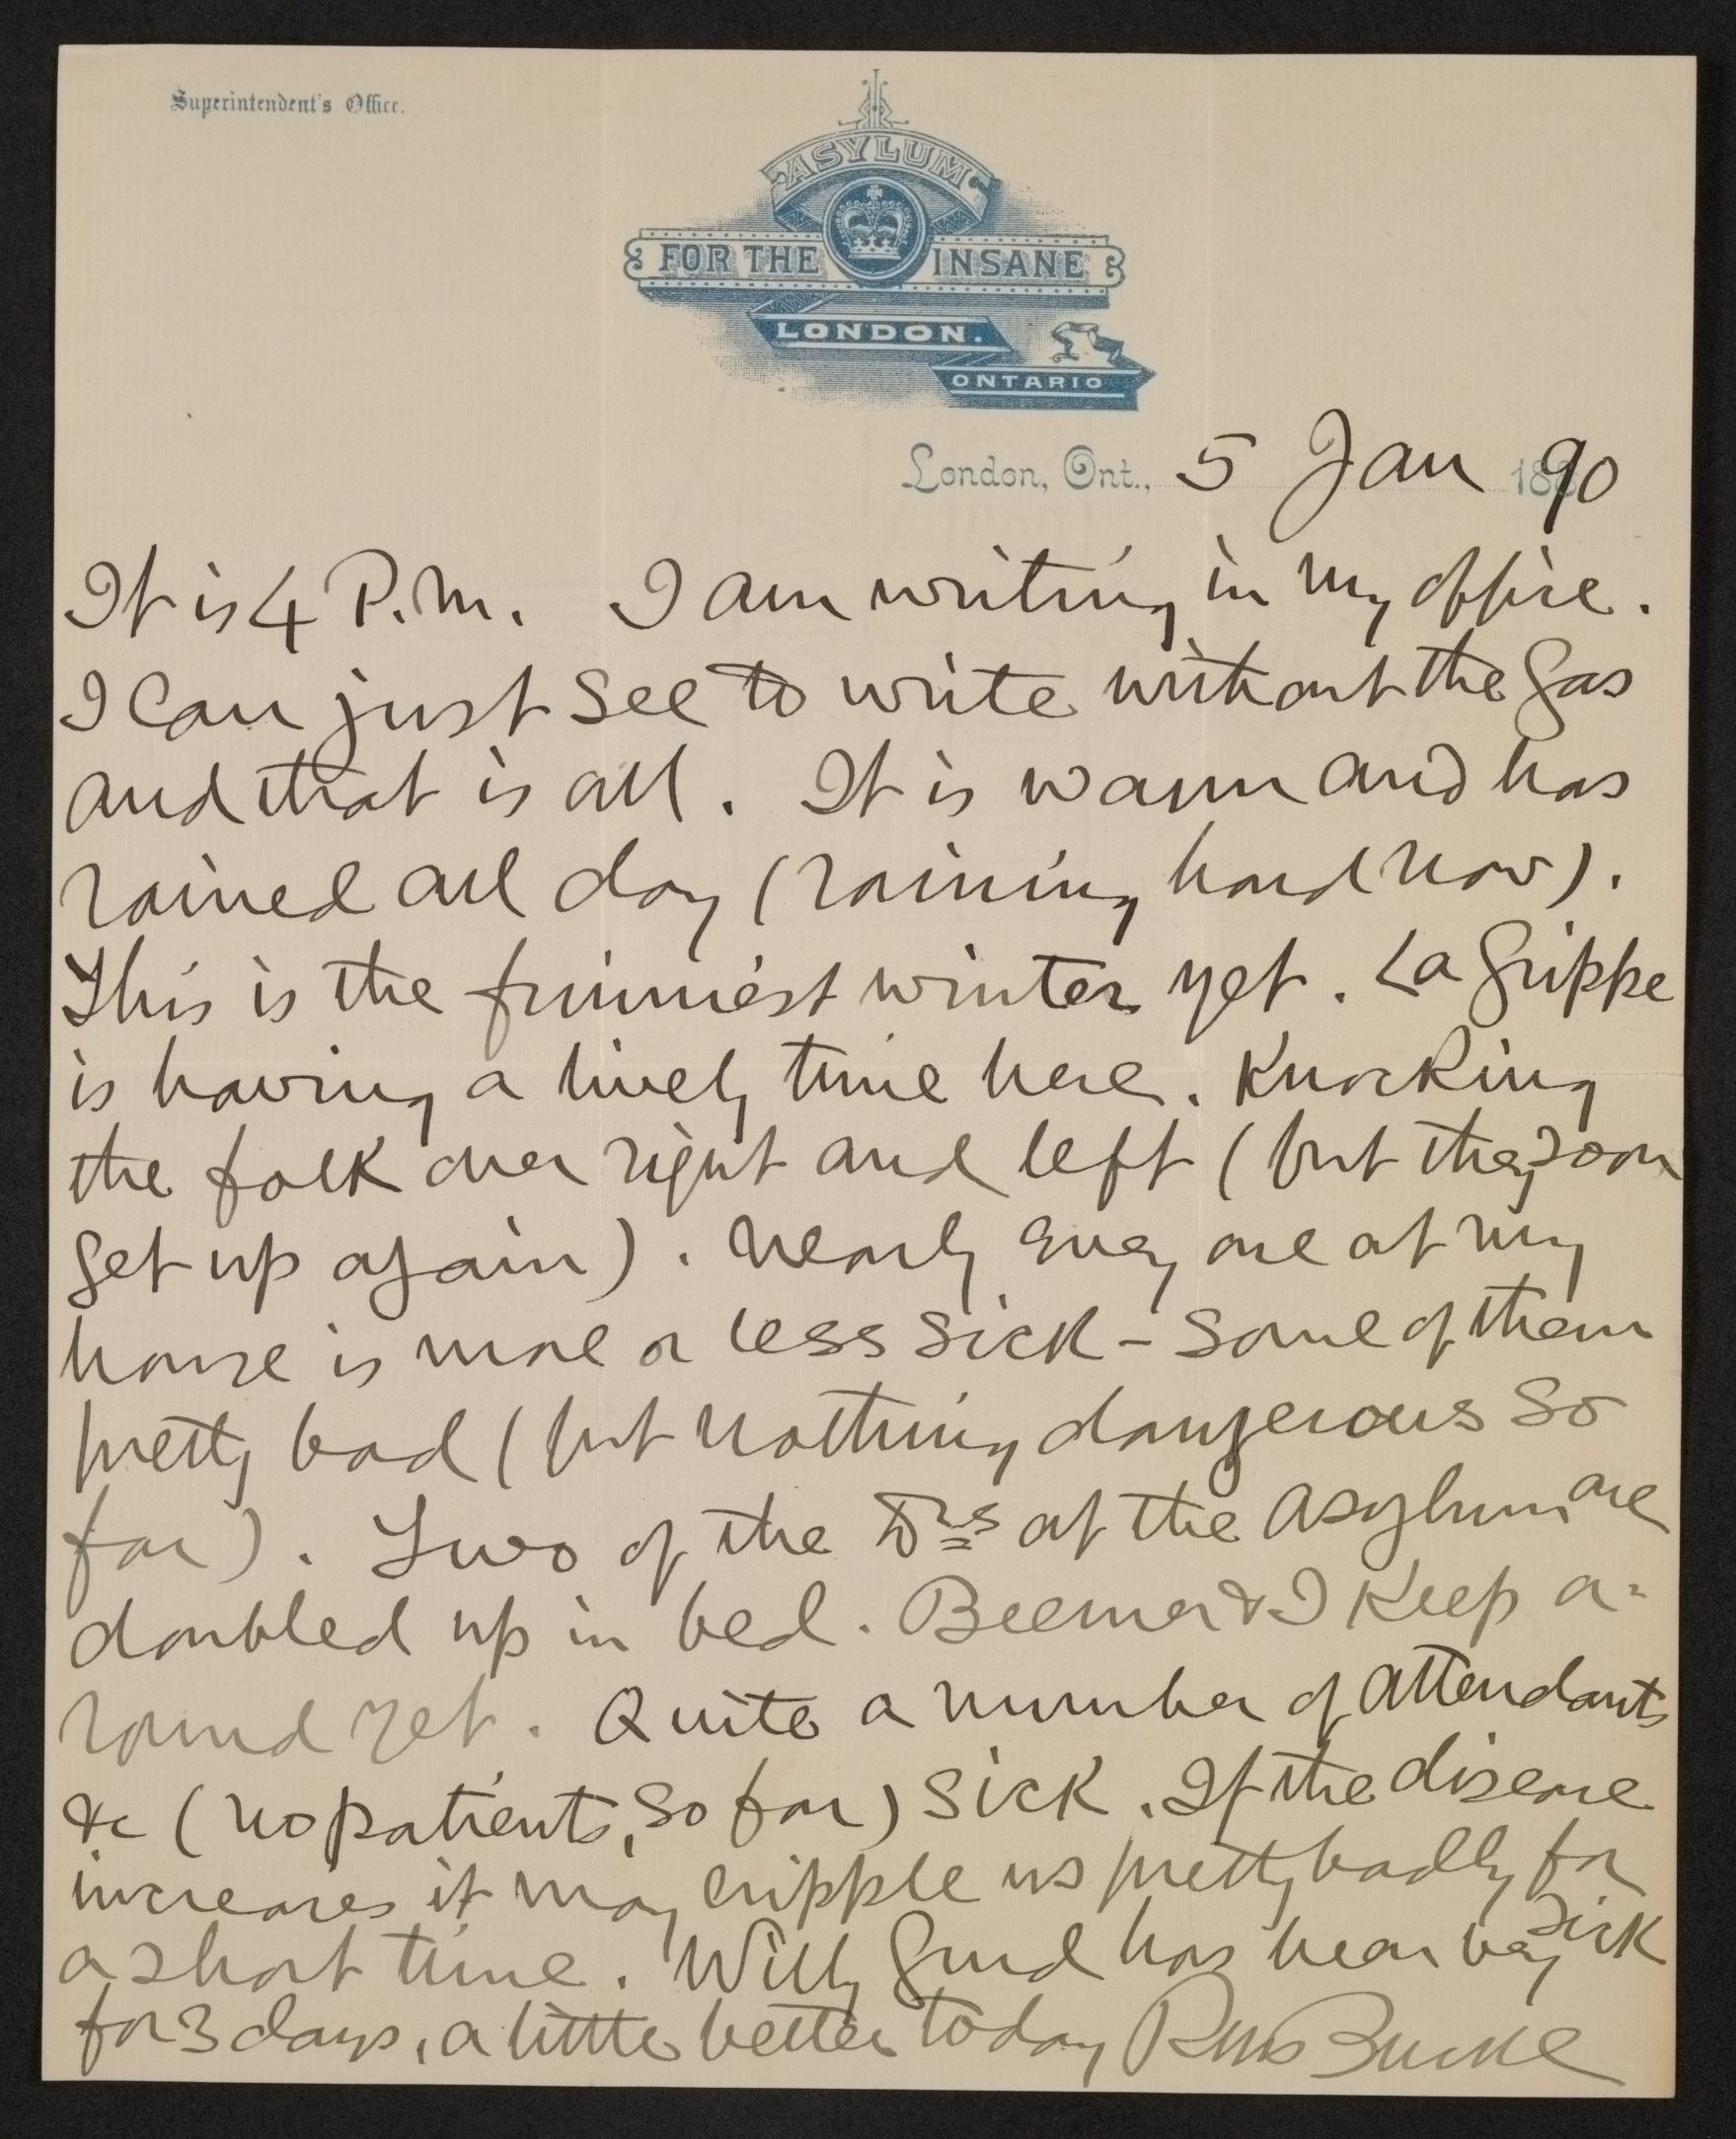 Superintendent's Office.
ASYLUM
FOR THE INSANE
LONDON.
ONTARIO
London, Ont., 5 Jan 1890
It is 4 P.M. I am writing in my office.
I can just see to write without the gas
and that is all. It is warm and has
rained all day (raining hard now).
This is the funniest winter yet. La Grippe
is having a lively time here. Knocking
the folk over right and left (but they soon
get up again). Nearly every one at my
house is more or less sick – some of them
pretty bad (but nothing dangerous so
far). Two of the Drs at the Asylum are
doubled up in bed. Beemer & I keep a-
round yet. Quite a number of attendants
&c (no patients, so far) sick. If the disease
increases it may cripple us pretty badly for
a short time. Willy Gurd has been very sick
for 3 days, a little better today RM Bucke